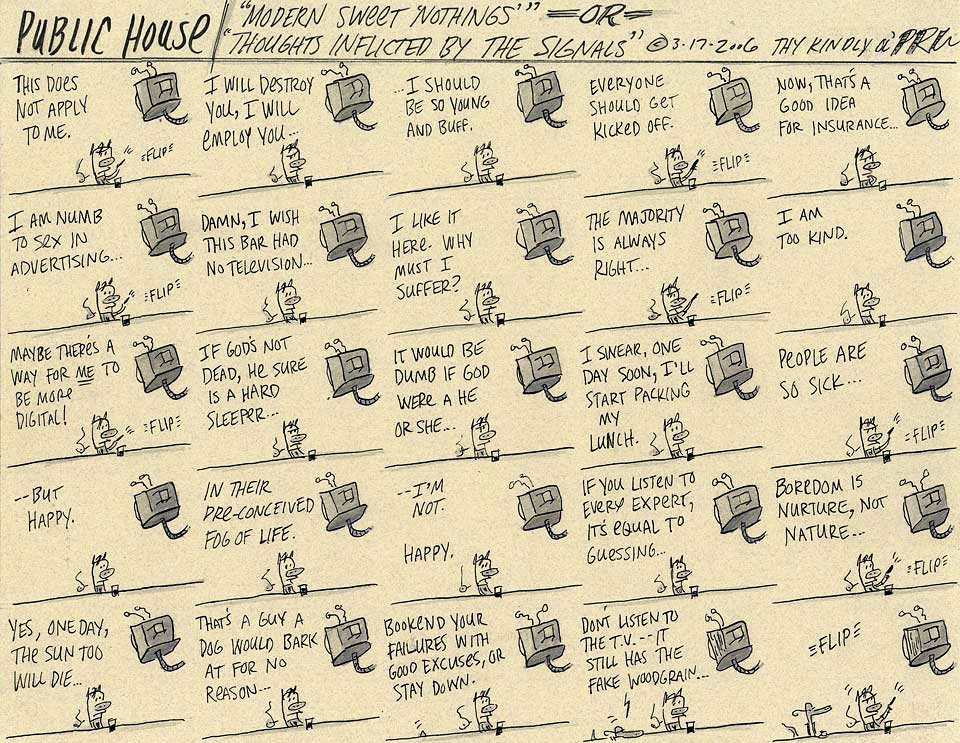 PUBLIC HOUSE
"MODERN SWEET 'NOTHINGS'" =OR=
"THOUGHTS INFLICTED BY THE SIGNALS" © 3-17-2006 THY KINDLY
THIS DOES
NOT APPLY
TO ME.
=FLIP=
I WILL DESTROY
YOU, I WILL
EMPLOY YOU...
...I SHOULD
BE SO YOUNG
AND BUFF.
EVERYONE
SHOULD GET
KICKED OFF.
=FLIP=
NOW, THAT'S A
GOOD IDEA
FOR INSURANCE...
I AM NUMB
TO SEX IN
ADVERTISING...
=FLIP=
DAMN, I WISH
THIS BAR HAD
NO TELEVISION...
I LIKE IT
HERE. WHY
MUST I
SUFFER?
THE MAJORITY
IS ALWAYS
RIGHT...
=FLIP=
I AM
TOO KIND.
MAYBE THERE'S A
WAY FOR ME TO
BE MORE
DIGITAL!
=FLIP=
IF GOD'S NOT
DEAD, HE SURE
IS A HARD
SLEEPER...
IT WOULD BE
DUMB IF GOD
WERE A HE
OR SHE...
I SWEAR, ONE
DAY SOON, I'LL
START PACKING
MY
LUNCH.
PEOPLE ARE
SO SICK...
=FLIP=
--BUT
HAPPY.
IN THEIR
PRE-CONCEIVED
FOG OF LIFE.
--I'M
NOT.
HAPPY.
IF YOU LISTEN TO
EVERY EXPERT,
IT'S EQUAL TO
GUESSING...
BOREDOM IS
NURTURE, NOT
NATURE...
=FLIP=
YES, ONE DAY,
THE SUN TOO
WILL DIE...
THAT'S A GUY A
DOG WOULD BARK
AT FOR NO
REASON...
BOOKEND YOUR
FAILURES WITH
GOOD EXCUSES, OR
STAY DOWN.
DON'T LISTEN TO
THE T.V. --IT
STILL HAS THE
FAKE WOODGRAIN...
=FLIP=